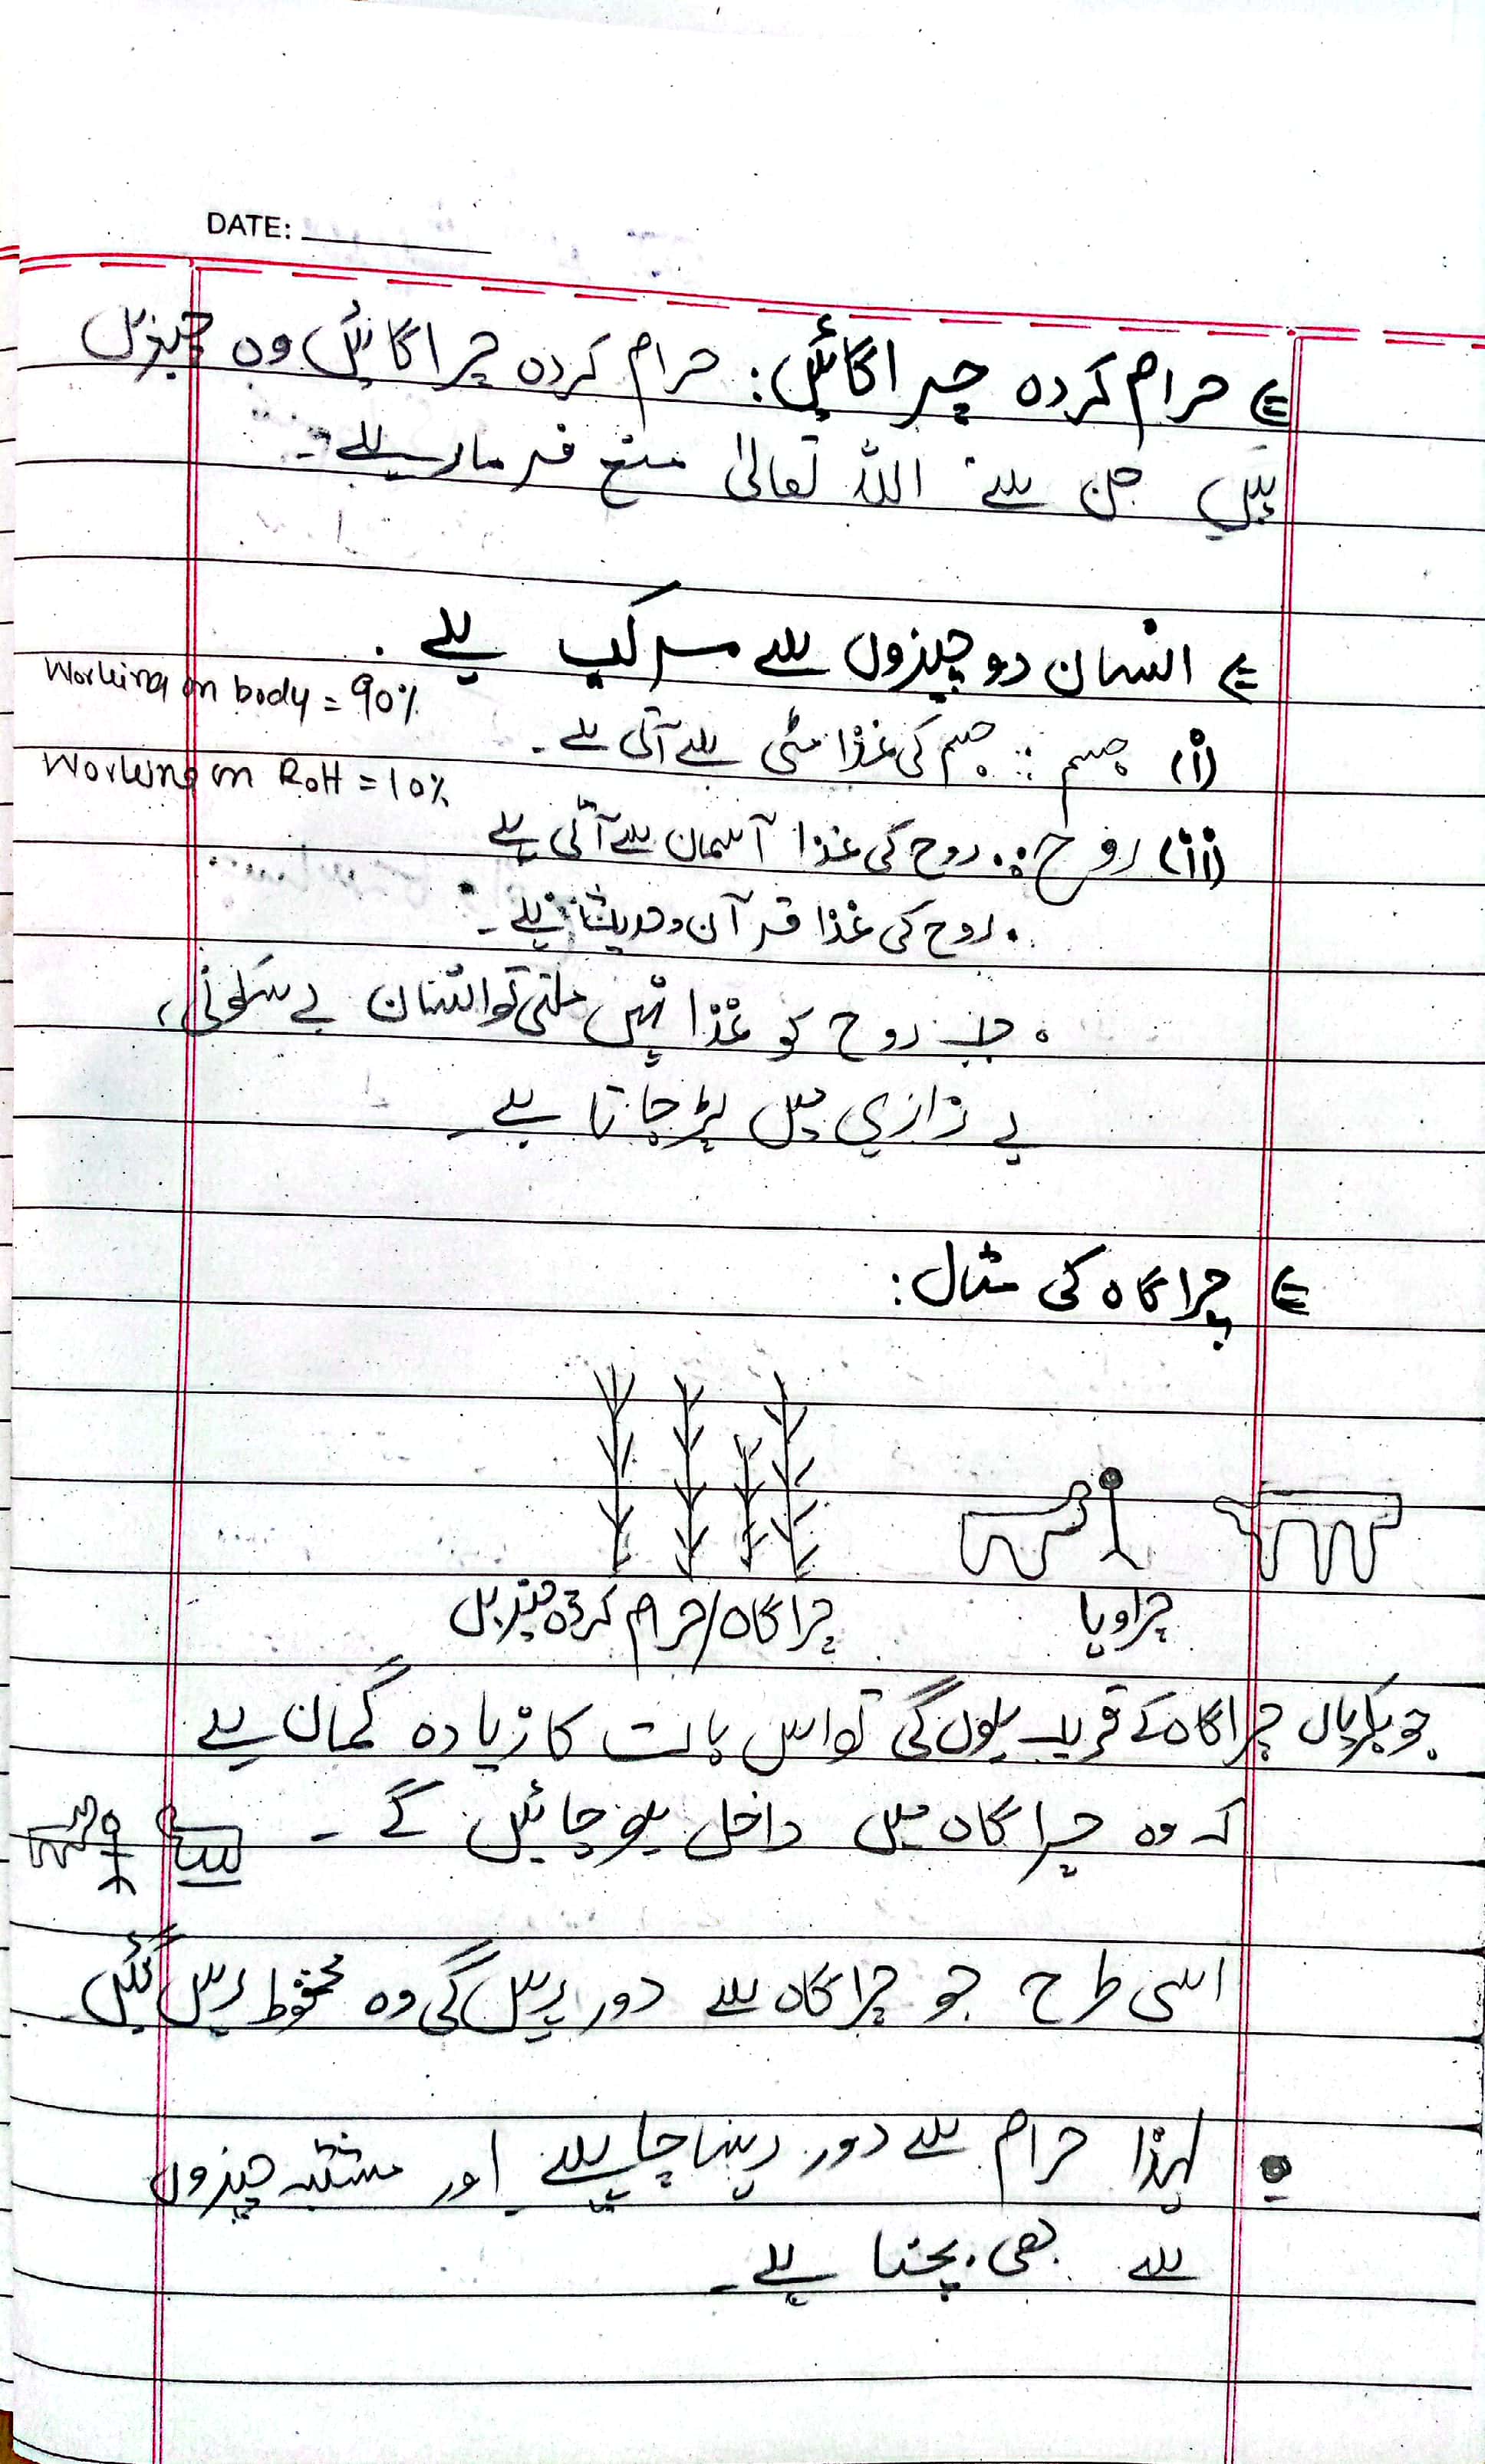 DATE:
⇐ حرام کردہ چراگائیں: حرام کردہ چراگائیں وہ چیزیں
ہیں جن سے اللہ تعالیٰ منع فرما رہے۔
⇐ انسان دو چیزوں سے مرکب ہے۔
Working on body = 90%
(i) جسم: جسم کی غذا مٹی سے آتی ہے۔
Working on RoH = 10%
(ii) روح: روح کی غذا آسمان سے آتی ہے
• روح کی غذا قرآن و حدیث ہے۔
• جب روح کو غذا نہیں ملتی تو انسان بے سکونی،
بے زاری میں پڑ جاتا ہے۔
⇐ چراگاہ کی مثال:
چراویا
چراگاہ/حرام کردہ چیزیں
جو بکریاں چراگاہ کے قریب ہوں گی تو اس بات کا زیادہ گمان ہے
کہ وہ چراگاہ میں داخل ہو جائیں گے۔
اسی طرح جو چراگاہ سے دور رہیں گی وہ محفوظ رہیں گئیں
• لہذا حرام سے دور رہنا چاہیے اور مشتبہ چیزوں
سے بھی بچنا ہے۔